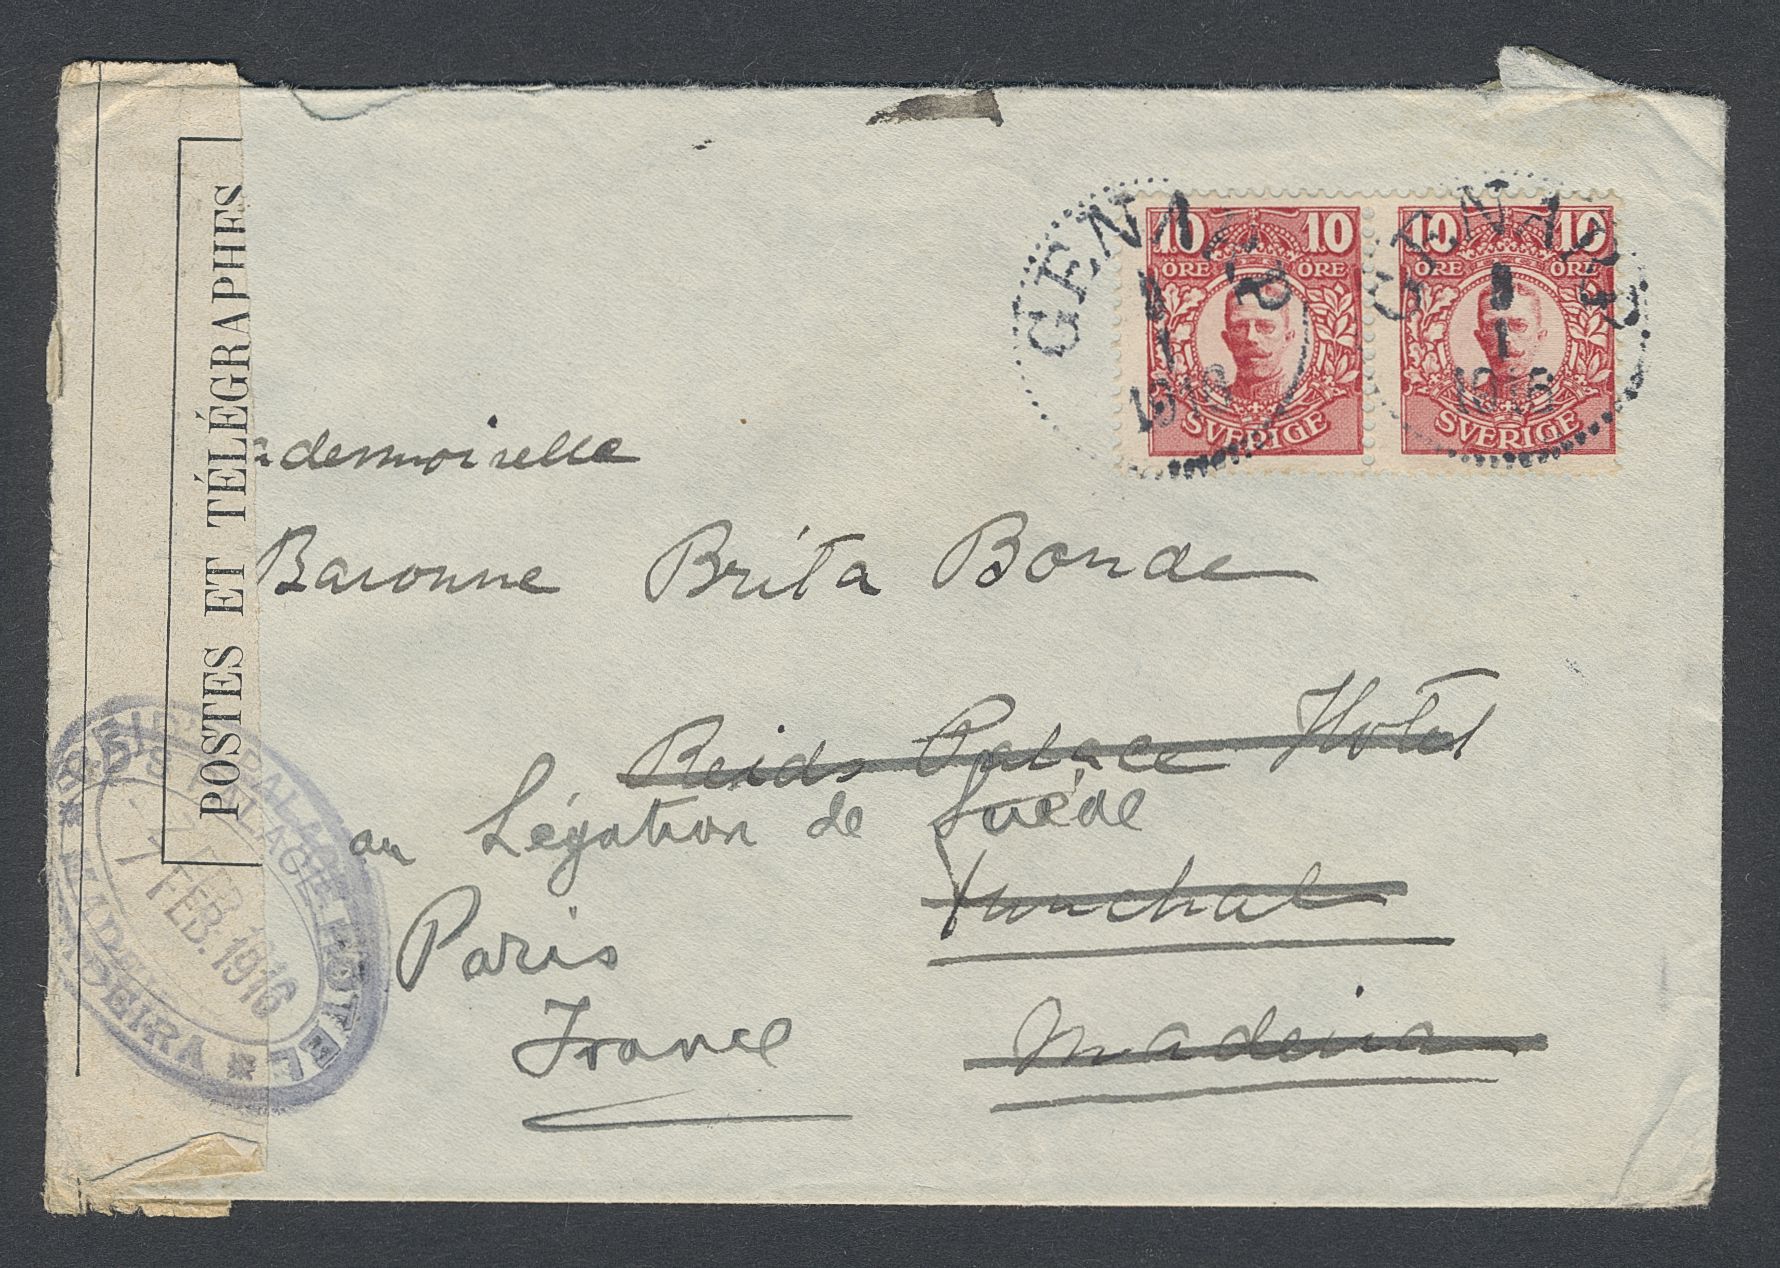 POSTES ET TÉLÉGRAPHES
GENARP
1
1916
GENARP
1
1916
10 10
ÖRE ÖRE
SVERIGE
10 10
ÖRE ÖRE
SVERIGE
ademoiselle
Baronne Brita Bonde
Reids Palace Hotel
au Légation de Suède
Funchal
Paris
Madeira
France
REID'S PALACE HOTEL
7 FEB. 1916
MADEIRA